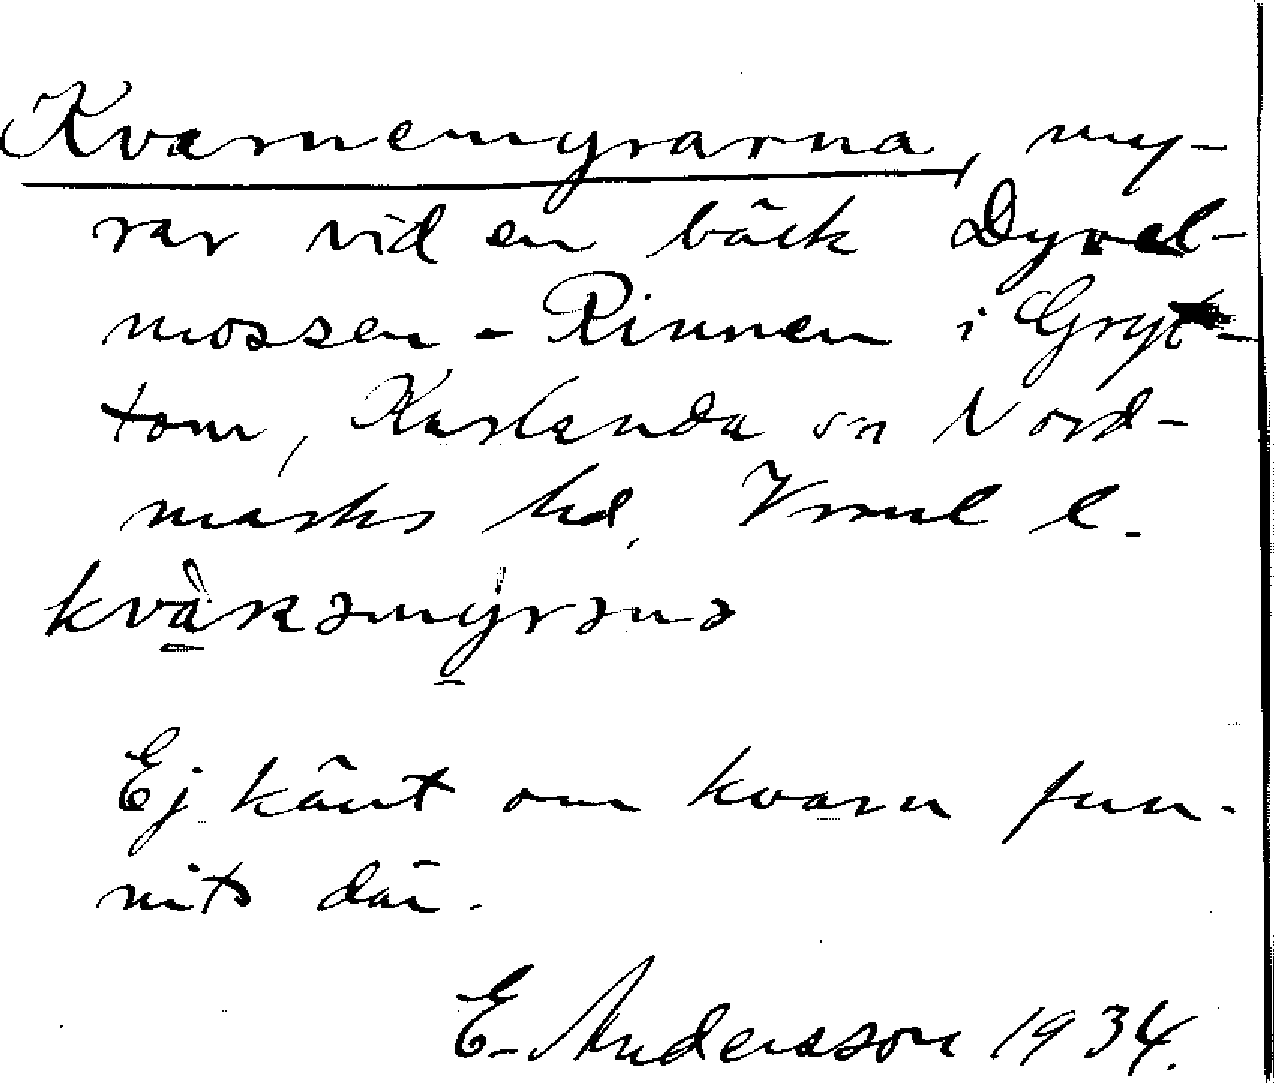 Kvarnemyrarna, my-
rar vid en bäck Dyvel-
mossen - Rinnen i Gryt-
tom, Karlanda sn Nord-
marks hd, Vrml l.
kvàrnəmýrənə
Ej känt om kvarn fun-
nits där.
E. Andersson 1934.